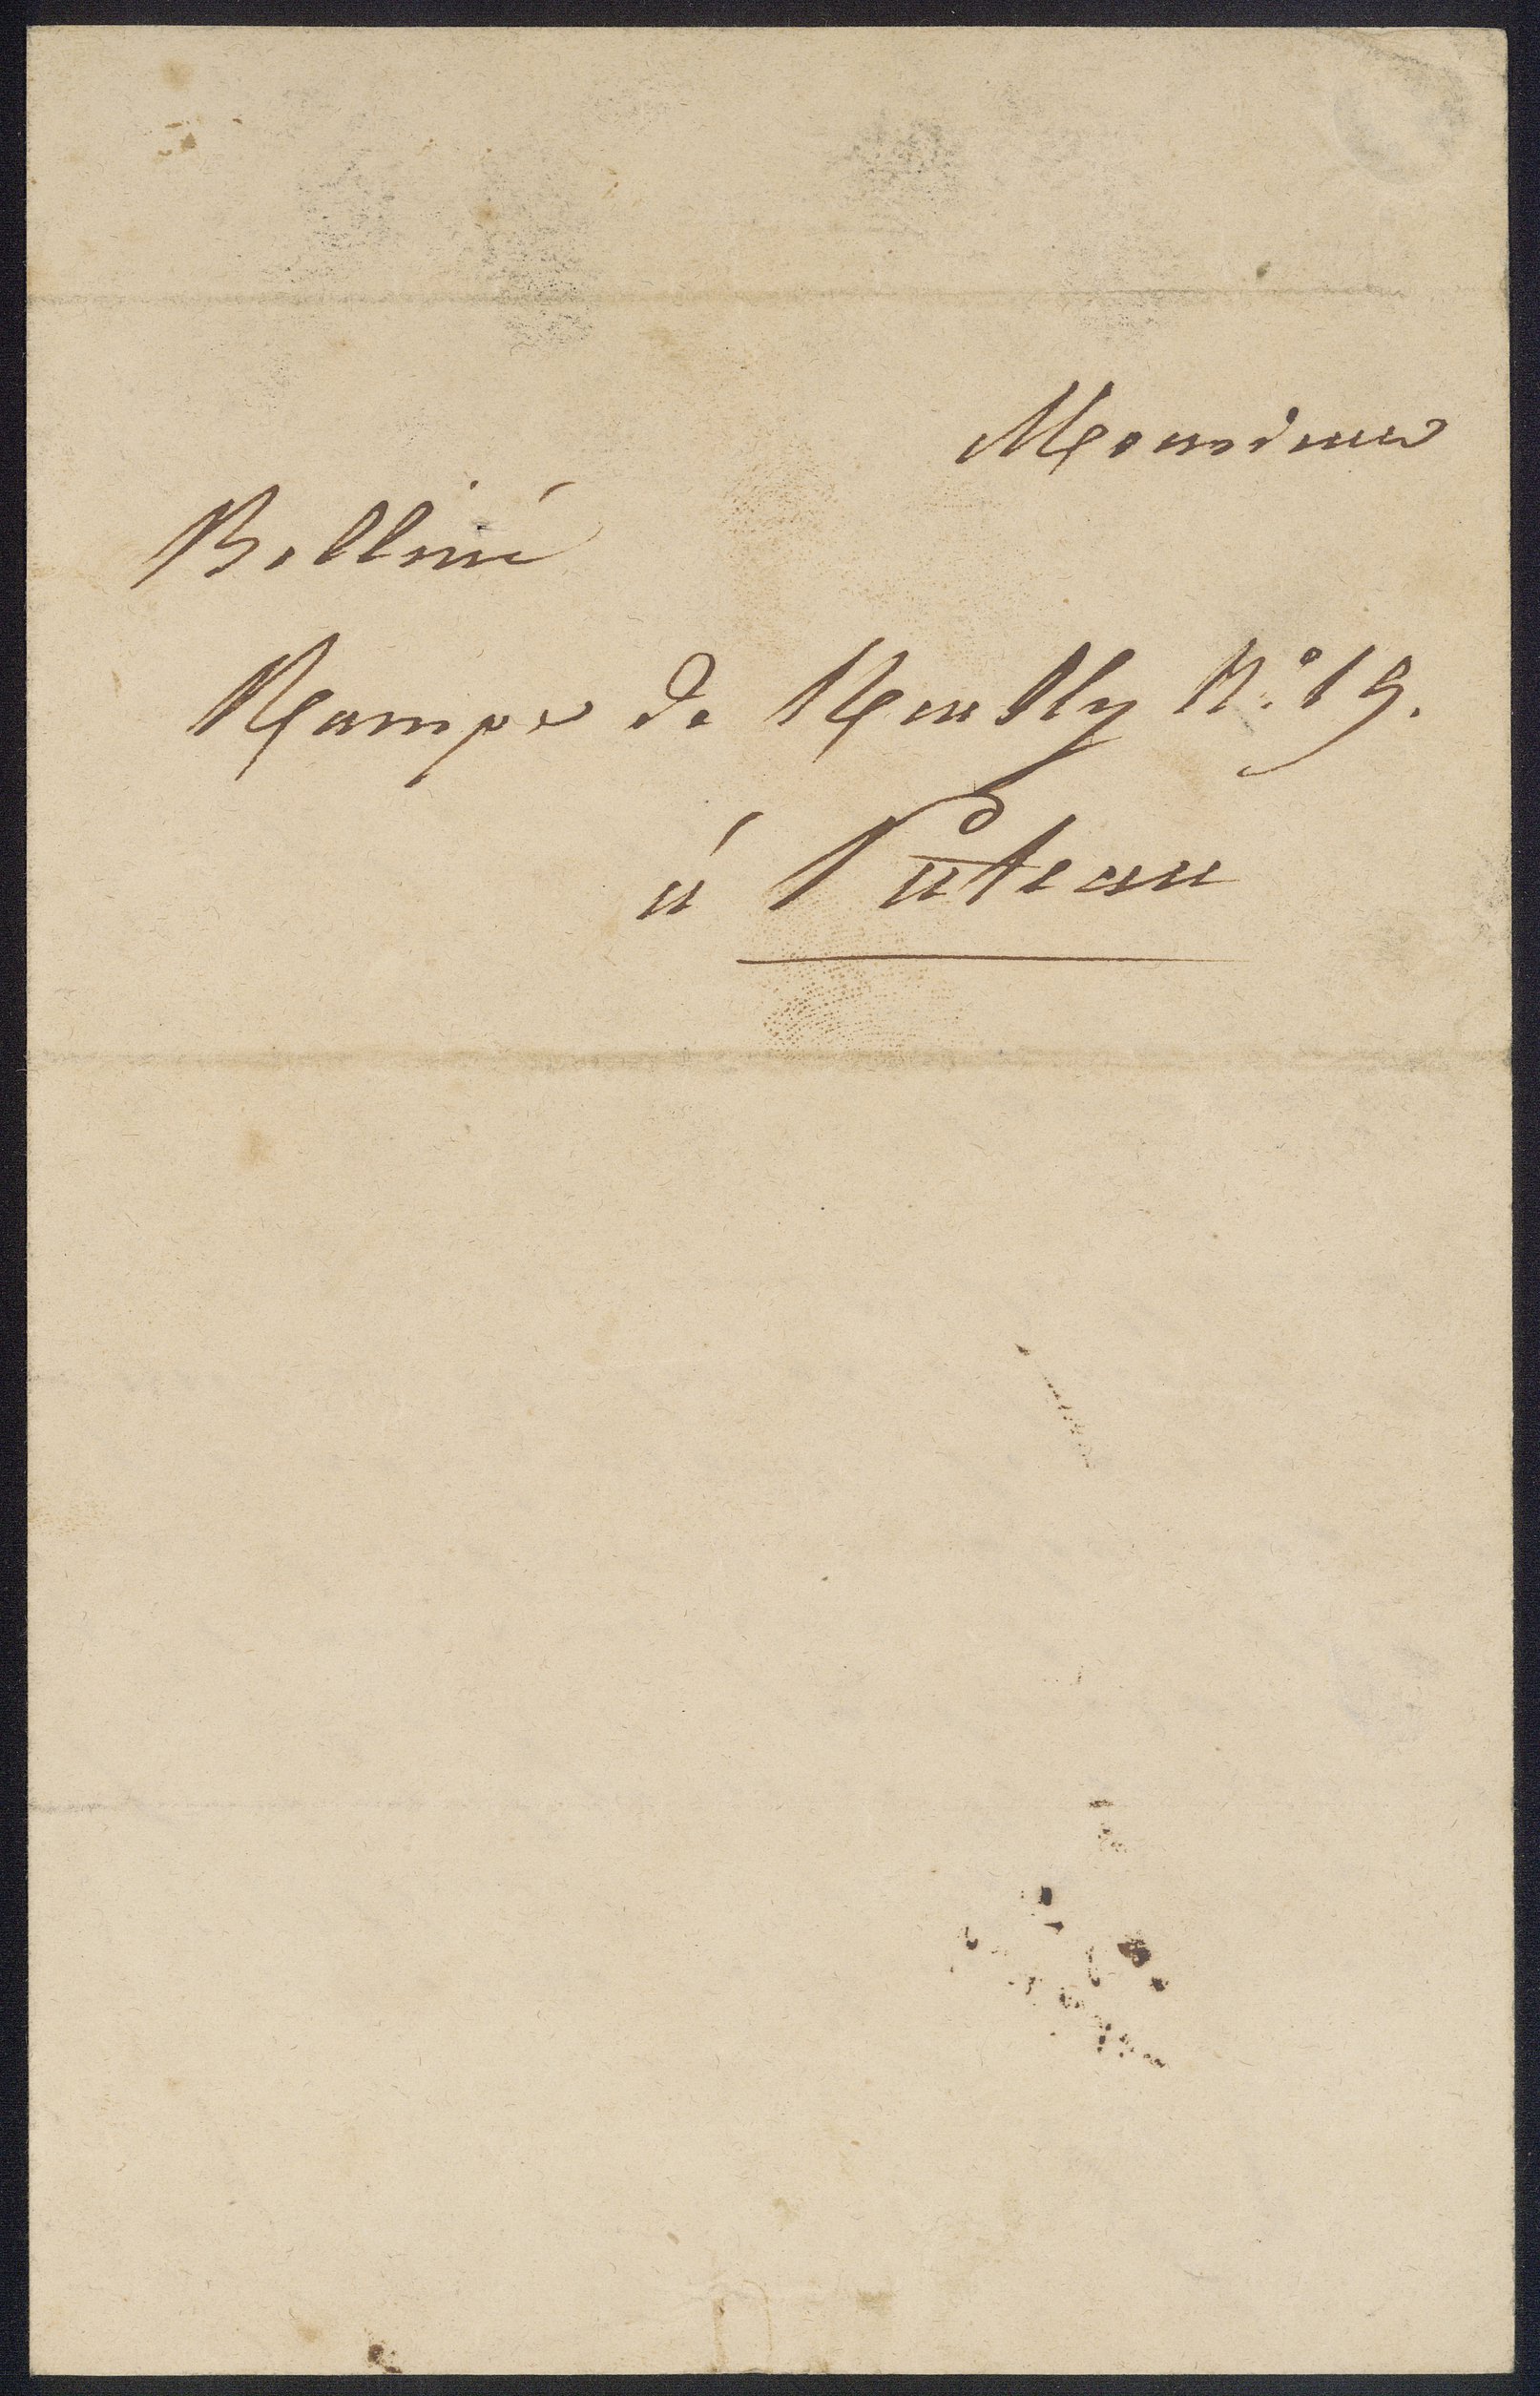 Monsieur
Bellini
Rampe de Neuilly N.° 19.
à Puteau